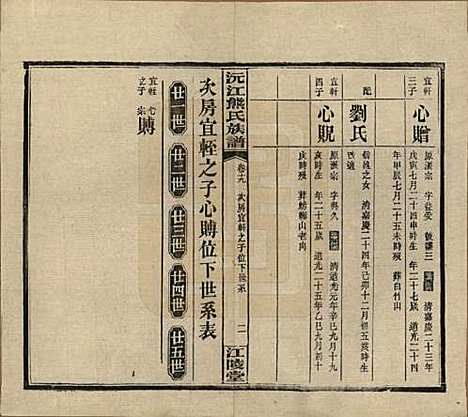 宜軒
三子
心贈
原溪宗
字益受
清嘉慶二十三年
戊寅七月二十四申時生
年二十七歲
道光二十四
年甲辰七月二十二未時歿
葬白竹山
配
劉氏
信逸之女
清嘉慶二十四年己卯十二月
宜軒
四子
心貺
原溪宗
字與久
清道光元年辛巳九月十九
亥時生
年二十五歲
道光二十五年乙巳九月四十
戌時歿
葬舫聯山老尚
沅江熊氏族譜
卷十九
次房宜軒之子位下世系
二
江陵堂
次房宜軽之子心賻位下世系表
廿一世
廿二世
廿三世
廿四世
廿五世
宜軒
之子
心賻